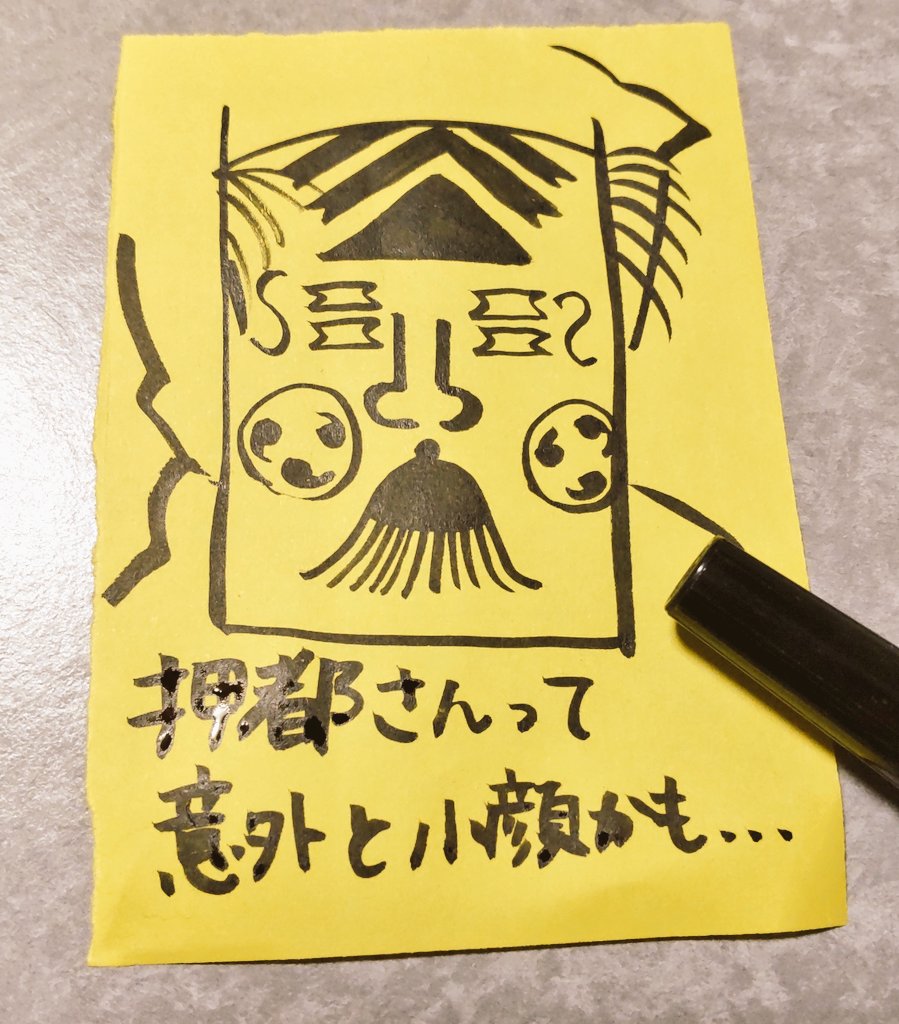 押都さんって
意外と小顔かも...